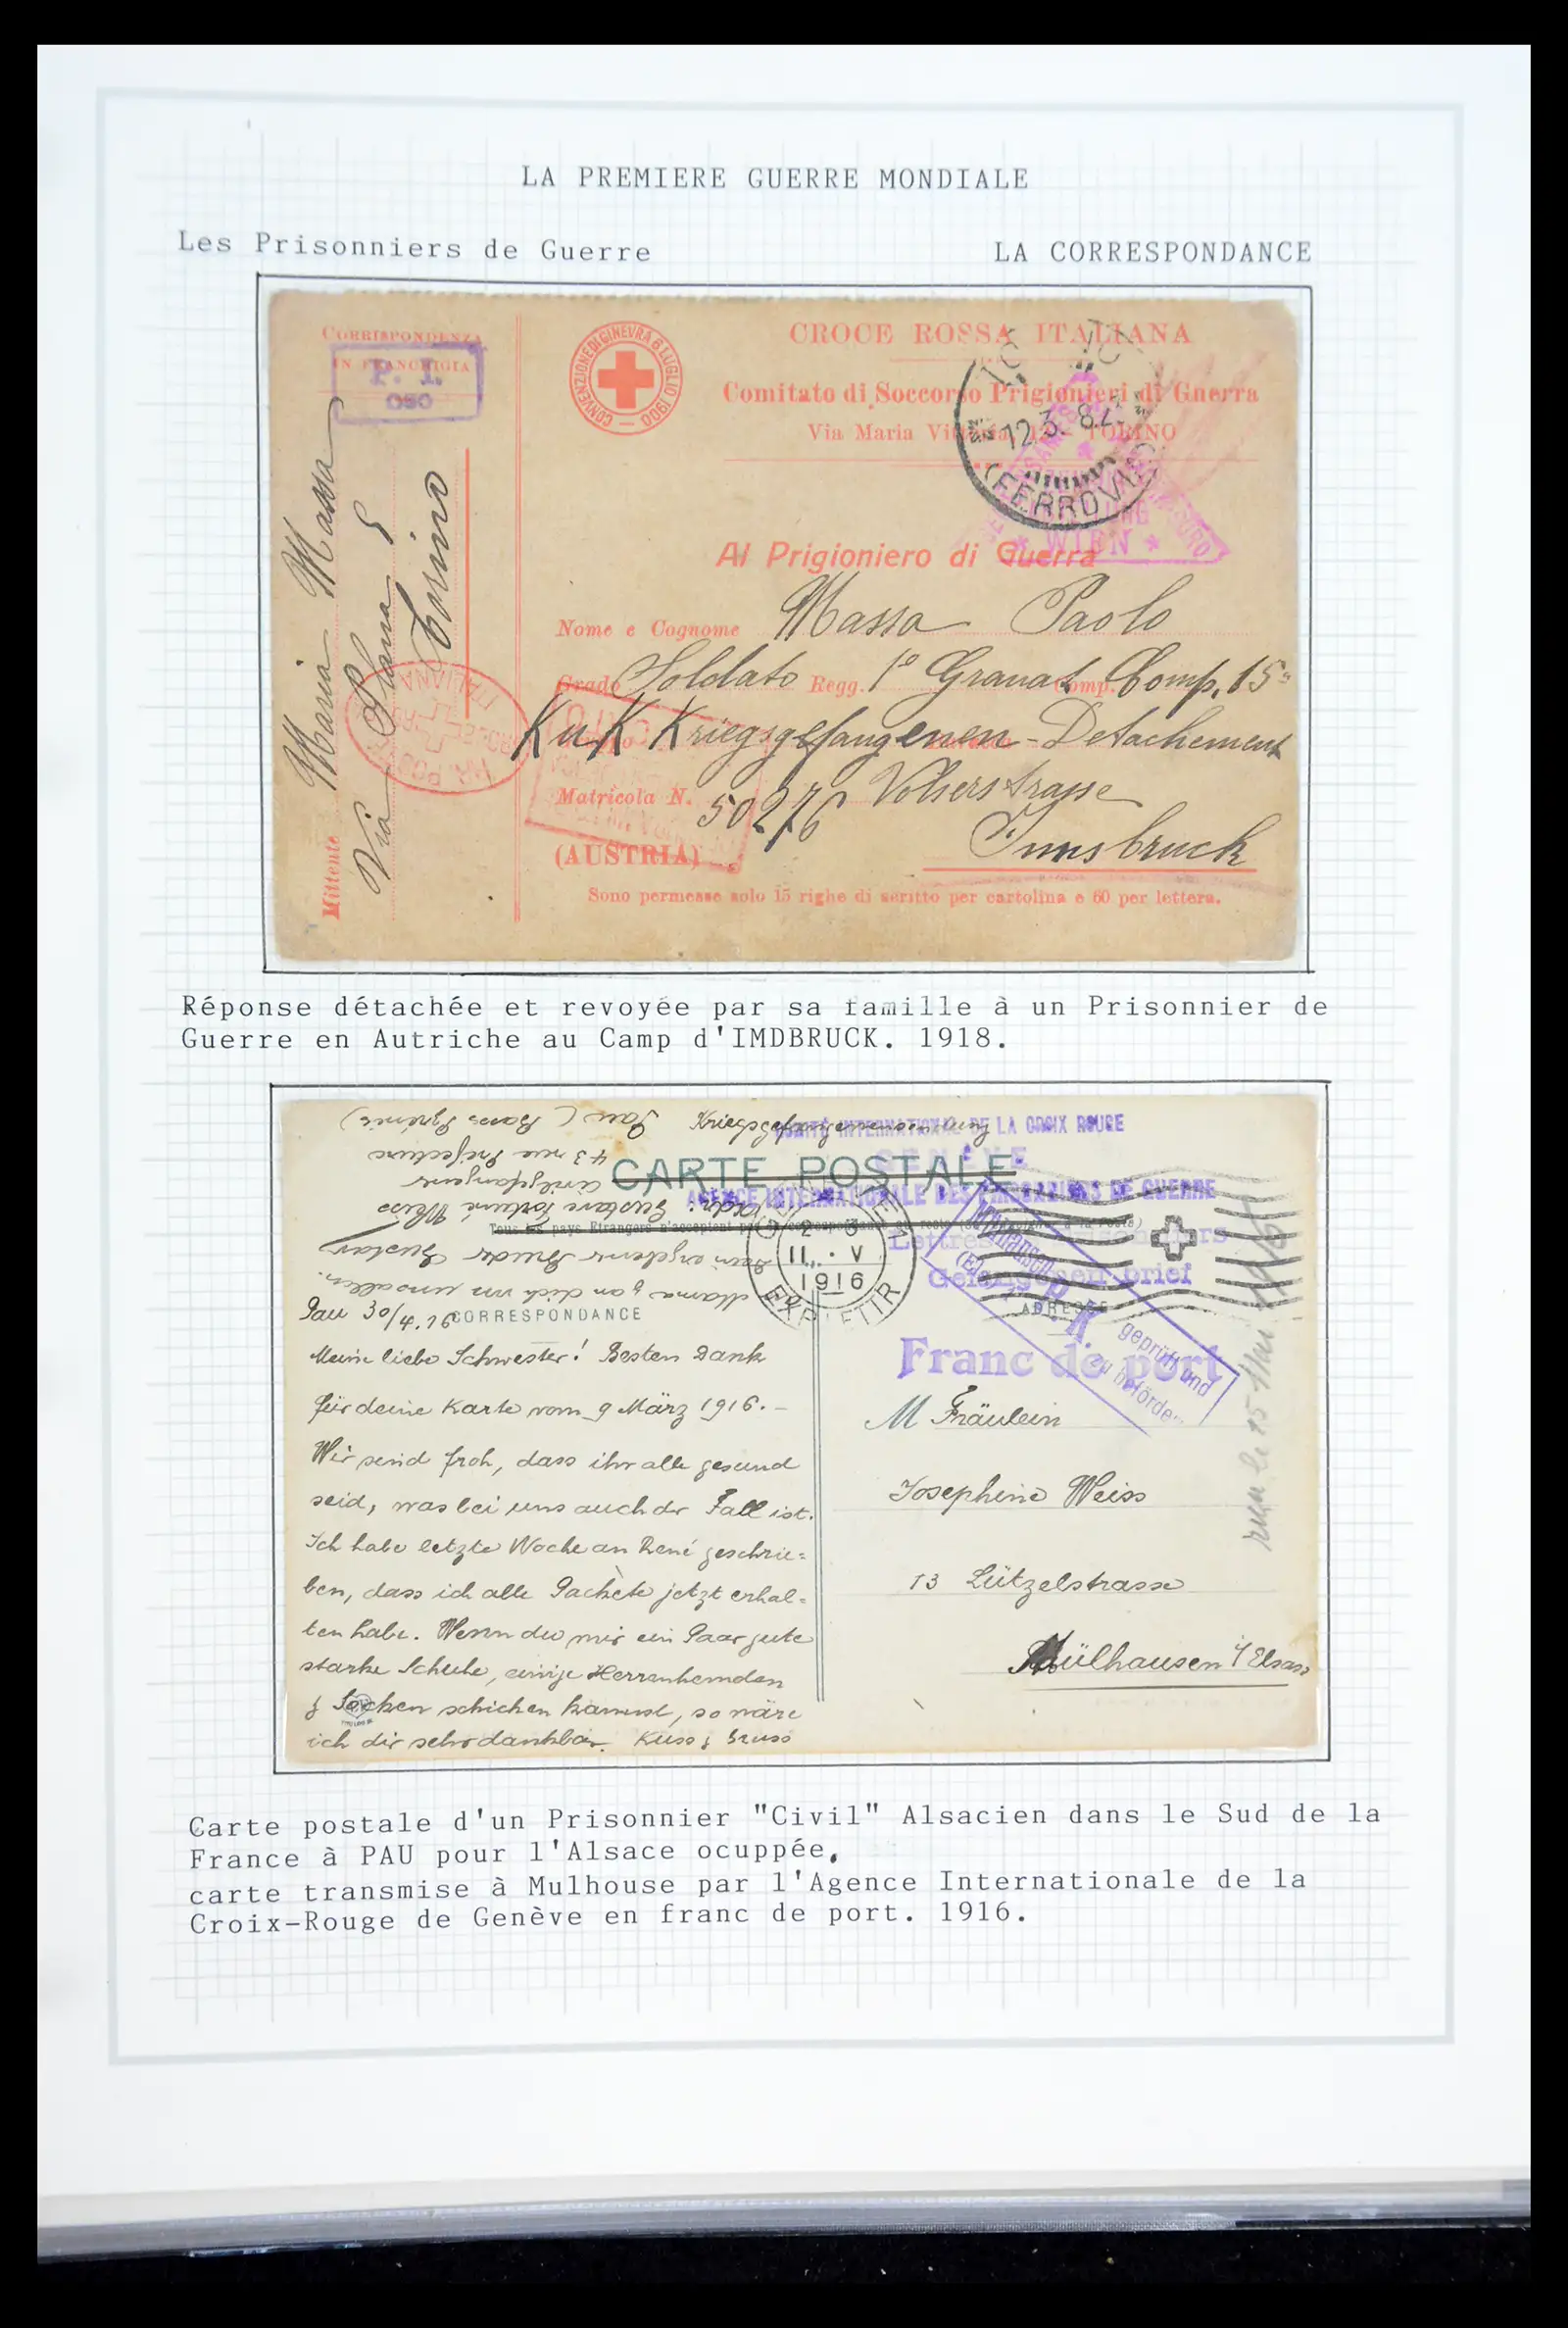 LA PREMIERE GUERRE MONDIALE
Les Prisonniers de Guerre
LA CORRESPONDANCE
CORRISPONDENZA
IN FRANCHIGIA
P. I.
Mittente Maria Massa
Via Plana 5
Torino
CONVENZIONE DI GINEVRA 6 LUGLIO 1900
CROCE ROSSA ITALIANA
Comitato di Soccorso Prigionieri di Guerra
Via Maria Vittoria, TORINO
(FERROVIA)
WIEN
Al Prigioniero di Guerra
Nome e Cognome Massa Paolo
Grado Soldato Regg. 1° Granat. Comp. Comp. 15ª
KuK Kriegsgefangenen-Detachement
Matricola N. 50276 Volserstrasse
(AUSTRIA) Innsbruck
Sono permesse solo 15 righe di scritto per cartolina e 60 per lettera.
Réponse détachée et revoyée par sa famille à un Prisonnier de
Guerre en Autriche au Camp d'IMDBRUCK. 1918.
Kriegsgefangenensendung
COMITÉ INTERNATIONAL DE LA CROIX ROUGE
GENÈVE
CARTE POSTALE
AGENCE INTERNATIONALE DES PRISONNIERS DE GUERRE
Tous les pays Etrangers n'acceptent pas la correspondance au recto
Lettres de prisonniers
Gefangenen brief
11. V
1916
EXP. LETTR.
Franc de port
Mülhausen
P. K.
geprüft und
zu befördern
ADRESSE
CORRESPONDANCE
Pau 30/4.16
Meine liebe Schwester! Besten Dank
für deine Karte vom 9 März 1916.-
Wir sind froh, dass ihr alle gesund
seid, was bei uns auch der Fall ist.
Ich habe letzte Woche an René geschrie=
ben, dass ich alle Packete jetzt erhal=
ten habe. Wenn du mir ein Paar gute
starke Schuhe, einige Herrenhemden
& Socken schicken kannst, so wäre
ich dir sehr dankbar. Kuss & Gruss
Mama & an dich von uns allen.
Dein ergebener Bruder Gustav
Adr: Gustave Fortuné Weiss
Civilgefangener
43 rue Préfecture
Pau (Bass Pyrénées)
M Fräulein
Josephine Weiss
13 Lützelstrasse
Mülhausen i/ Elsass
reçu le 15 Mai 1916
Carte postale d'un Prisonnier "Civil" Alsacien dans le Sud de la
France à PAU pour l'Alsace ocuppée,
carte transmise à Mulhouse par l'Agence Internationale de la
Croix-Rouge de Genève en franc de port. 1916.